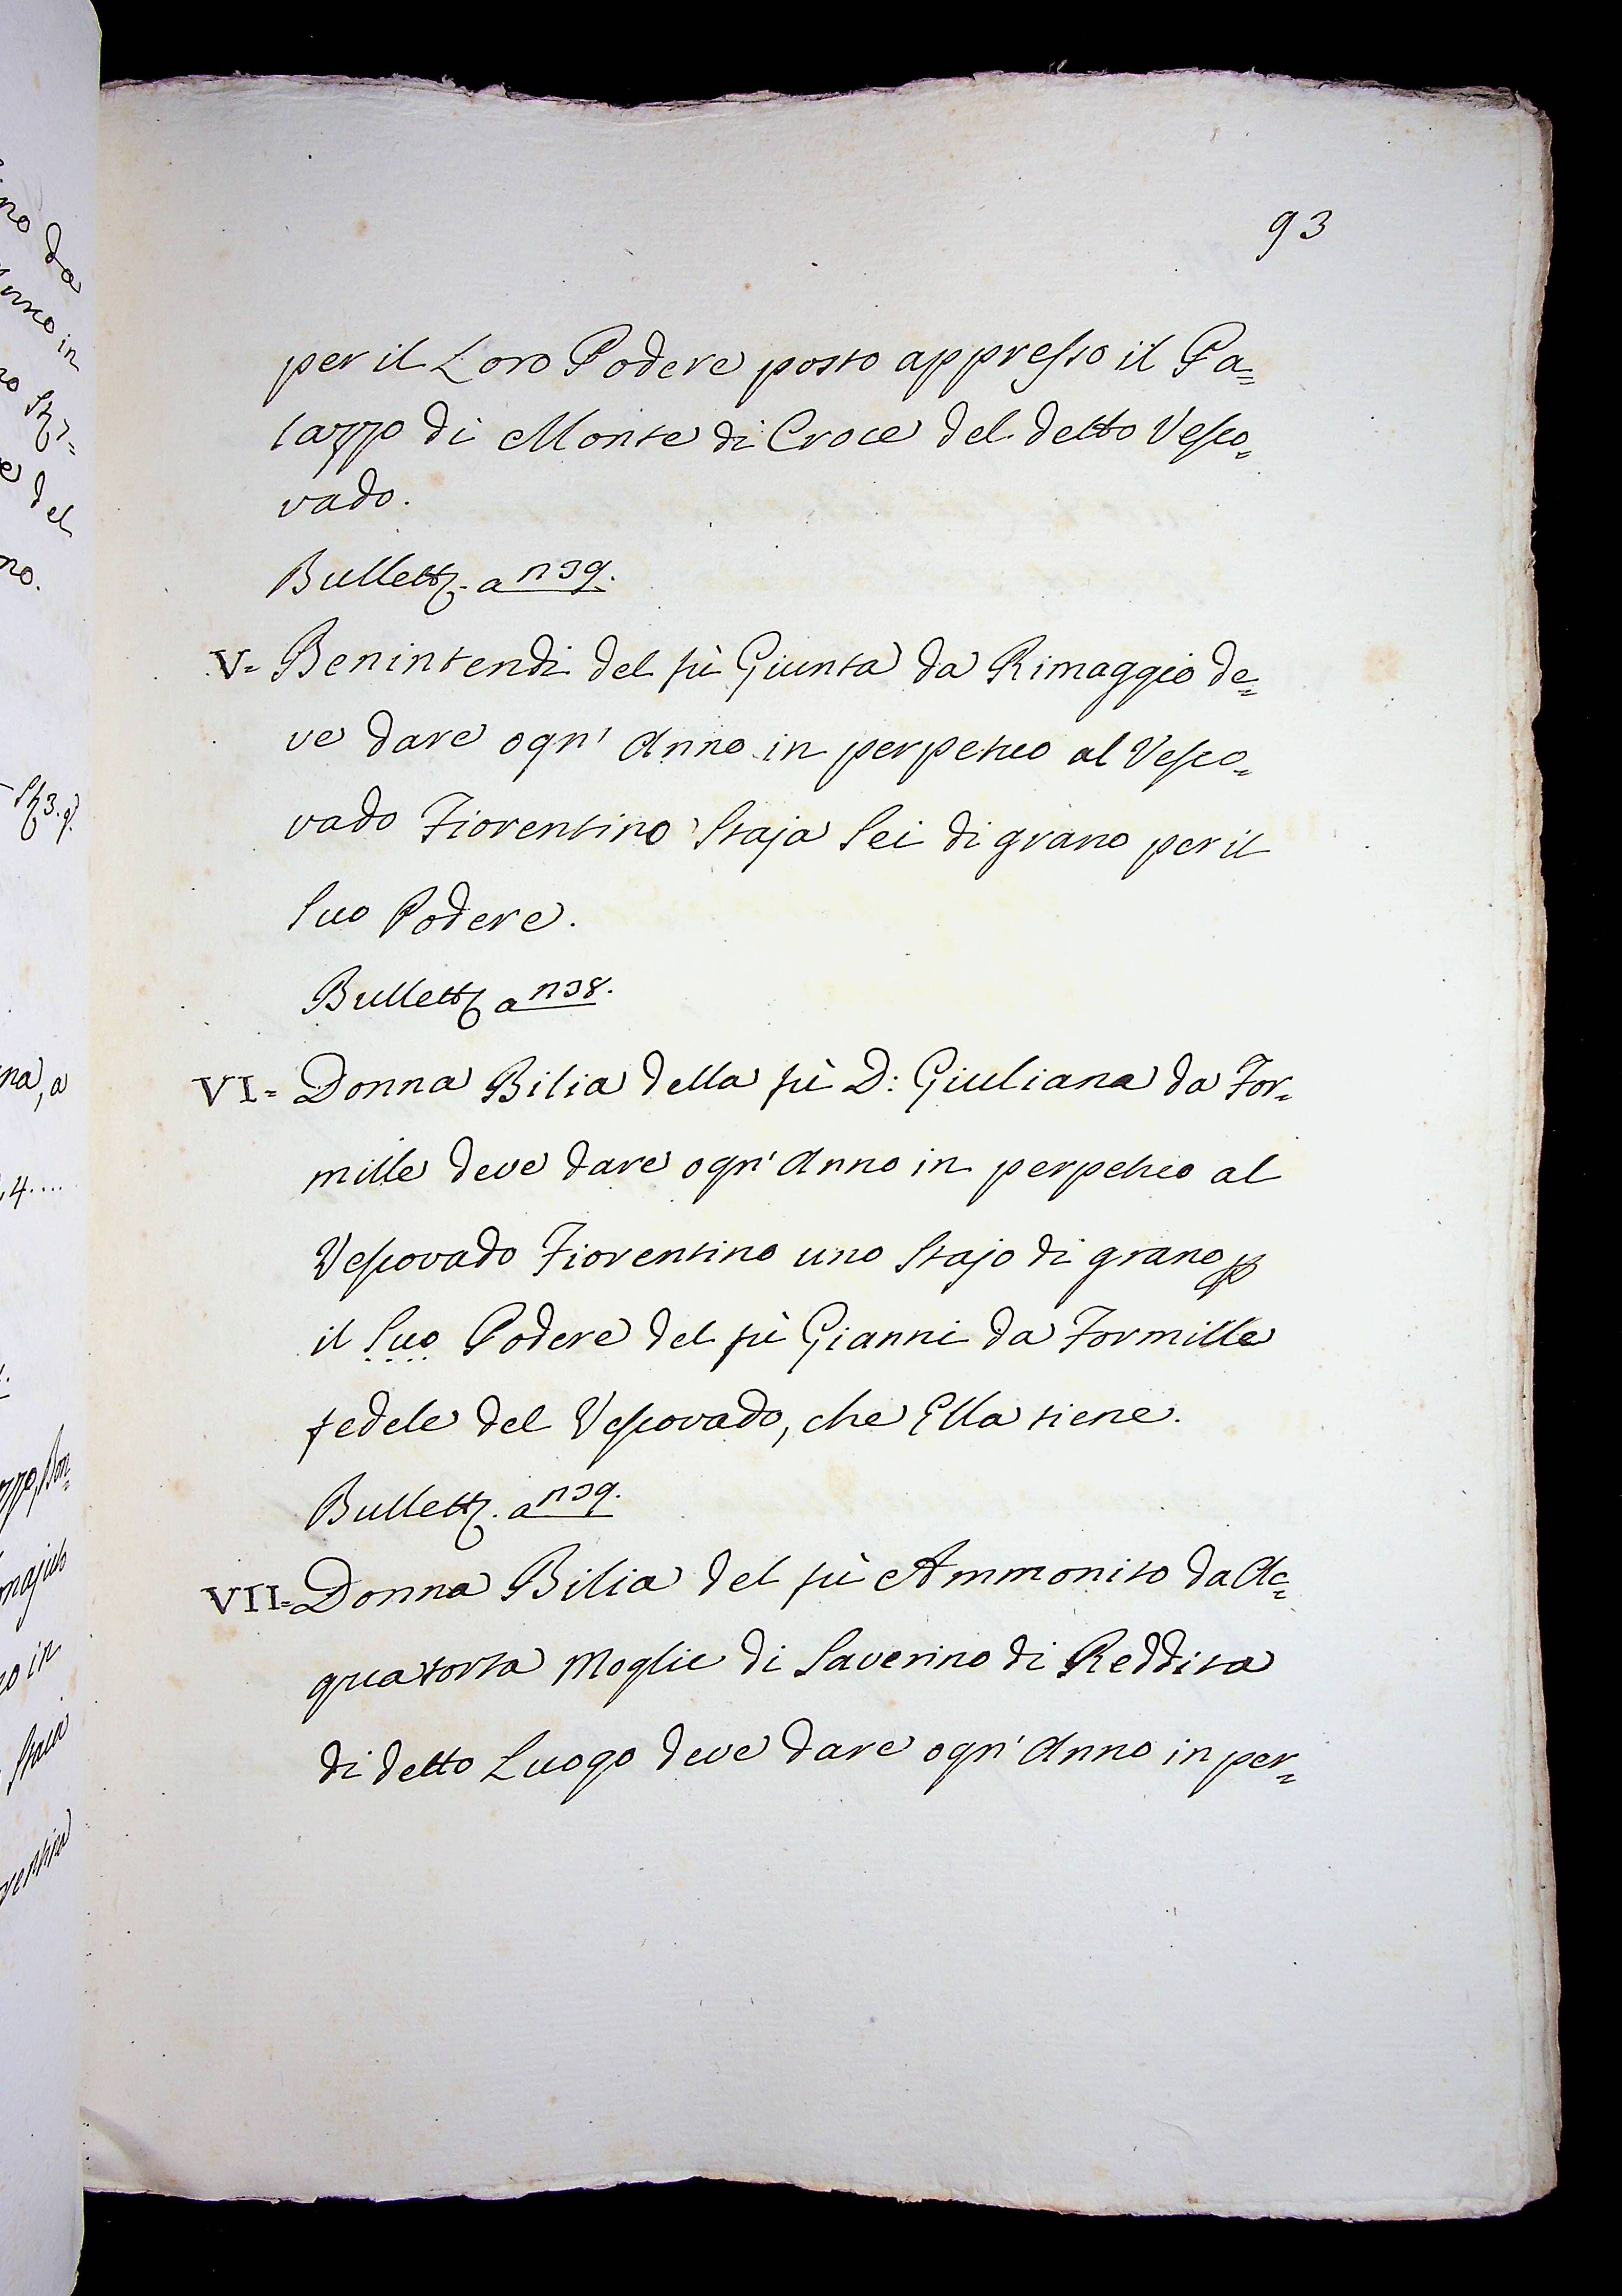 93
per il Loro Podere posto appresso il Pa=
lazzo di Monte di Croce del detto Vesco=
vado.
Bullett. a n39.
V= Benintendi del fù Giunta da Rimaggio de=
ve dare ogn' Anno in perpetuo al Vesco=
vado Fiorentino Staja Sei di grano per il
Suo Podere.
Bullett a n38.
VI= Donna Bilia della fù D: Giuliana da For=
mille deve dare ogn' Anno in perpetuo al
Vescovado Fiorentino uno Stajo di grano p
il Suo Podere del fù Gianni da Formille
fedele del Vescovado, che Ella tiene.
Bullett. a n39.
VII= Donna Bilia del fù Ammonito da Ac=
quatorta Moglie di Saverino di Reddita
di detto Luogo deve dare ogn' Anno in per=